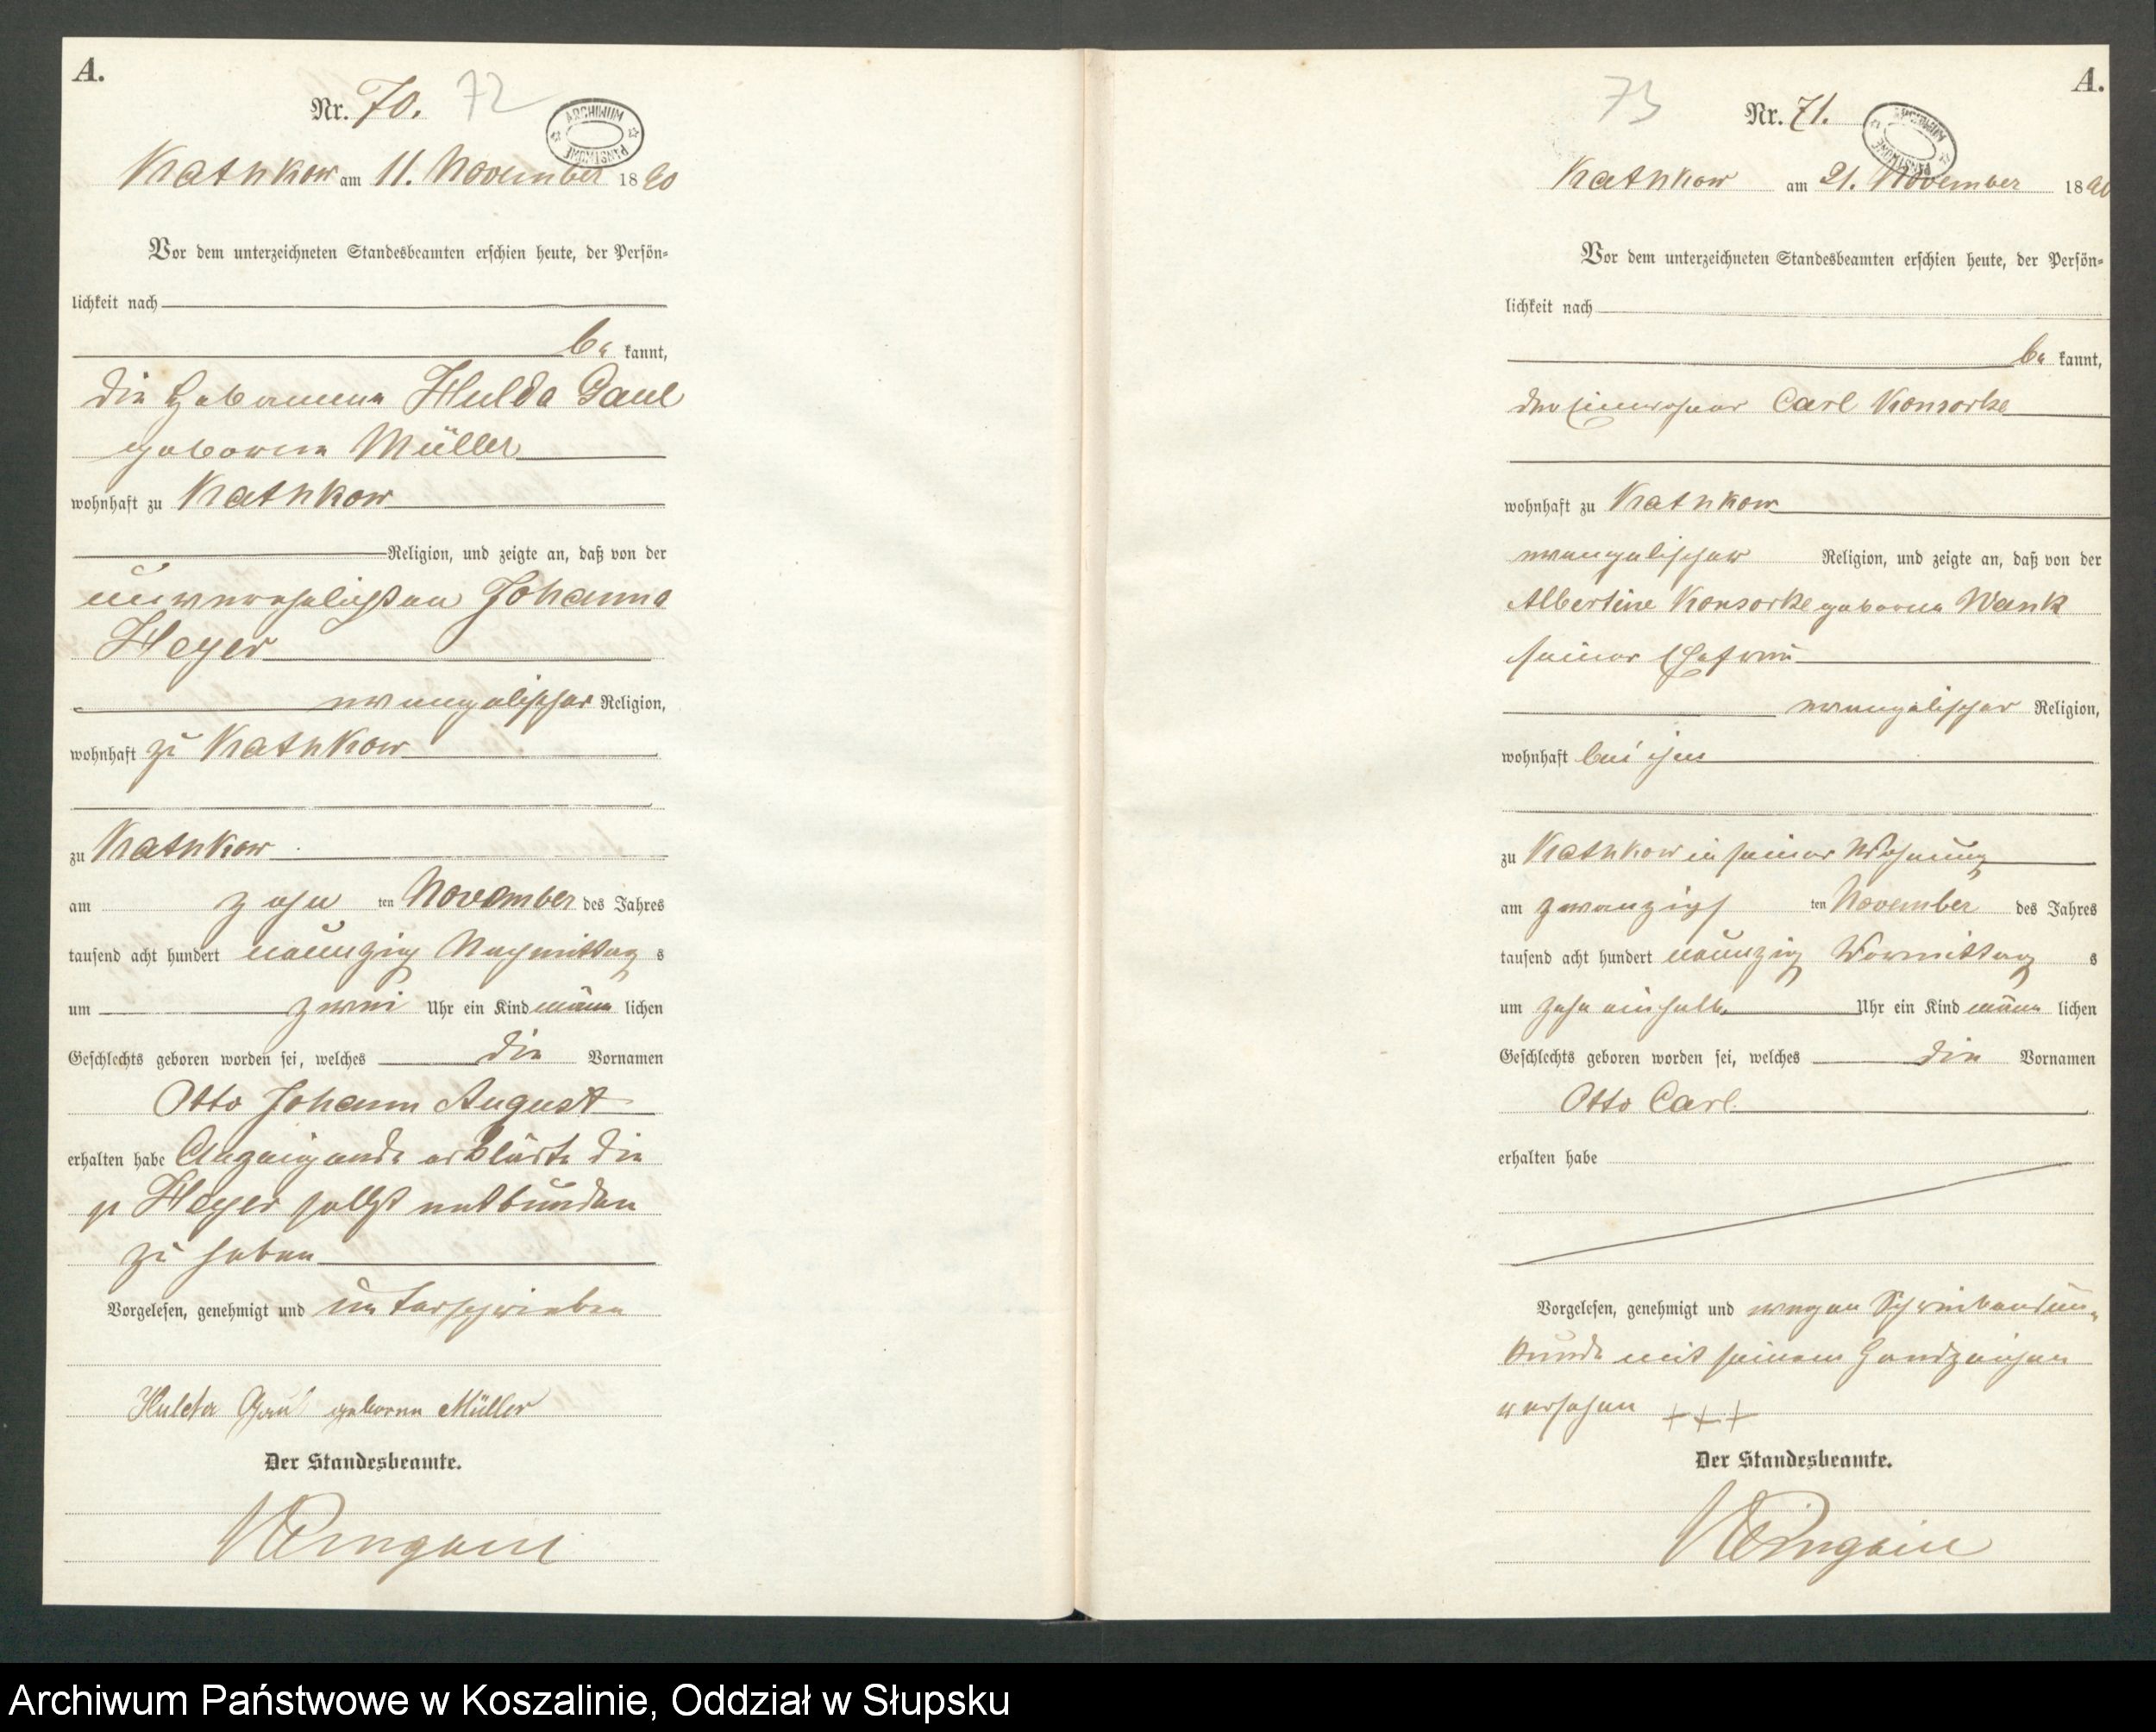 A.
Nr. 70. 72
ARCHIWUM PAŃSTWOWE
Kathkow am 11. November 1890
Vor dem unterzeichneten Standesbeamten erschien heute, der Persön-
lichkeit nach
be kannt,
die Hebamme Hulda Gaul
geborene Müller
wohnhaft zu Kathkow
Religion, und zeigte an, daß von der
unverehelichten Johanna
Heyer
evangelischer Religion,
wohnhaft zu Kathkow
zu Kathkow
am zehn ten November des Jahres
tausend acht hundert neunzig Nachmittag s
um zwei Uhr ein Kind männ lichen
Geschlechts geboren worden sei, welches die Vornamen
Otto Johann August
erhalten habe Anzeigende erklärte die
p Heyer selbst entbunden
zu haben
Vorgelesen, genehmigt und unterschrieben
Hulda Gaul geborene Müller
Der Standesbeamte.
A.
73 Nr. 71.
ARCHIWUM PAŃSTWOWE
Kathkow am 21. November 1890
Vor dem unterzeichneten Standesbeamten erschien heute, der Persön-
lichkeit nach
be kannt,
der Einwohner Carl Konsorke
wohnhaft zu Kathkow
evangelischer Religion, und zeigte an, daß von der
Albertine Konsorke geborene Wank
seiner Ehefrau
evangelischer Religion,
wohnhaft bei ihm
zu Kathkow in seiner Wohnung
am zwanzigs ten November des Jahres
tausend acht hundert neunzig Vormittag s
um zehn einhalb Uhr ein Kind männ lichen
Geschlechts geboren worden sei, welches die Vornamen
Otto Carl
erhalten habe
Vorgelesen, genehmigt und wegen Schreibensun-
kunde mit seinem Handzeichen
versehen +++
Der Standesbeamte.
Archiwum Państwowe w Koszalinie, Oddział w Słupsku